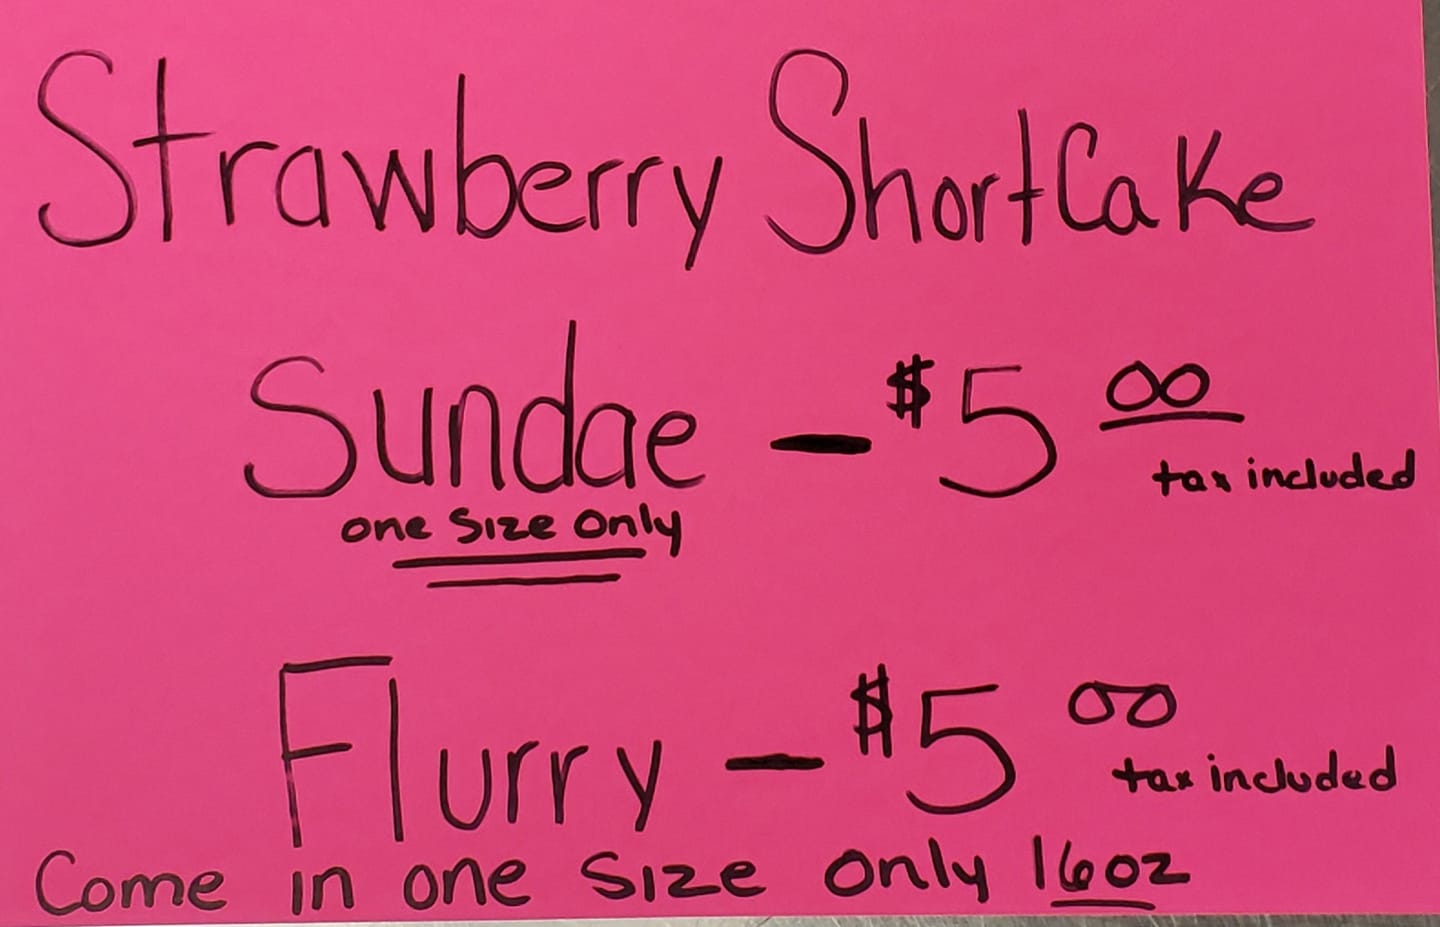 Strawberry ShortCake
Sundae - $5 00
tax included
one size only
Flurry - $5 00
tax included
Come in one size only 16oz